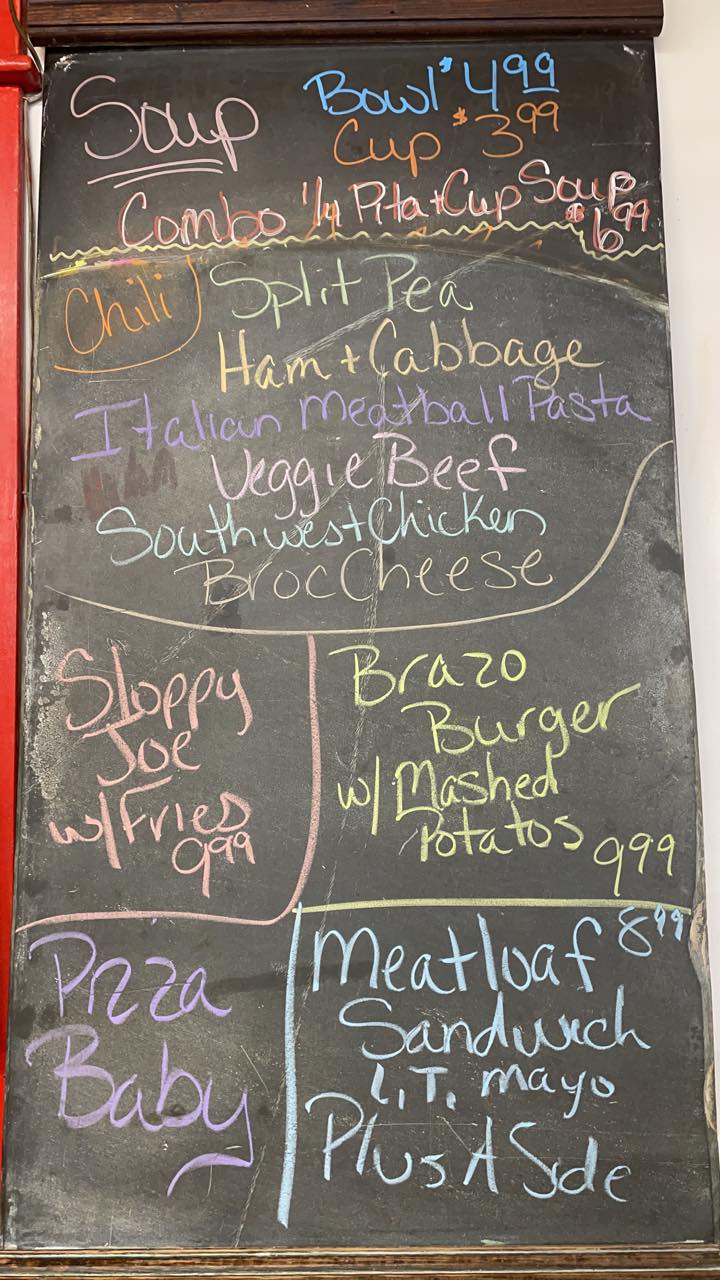 Soup Bowl $4.99
Cup $3.99
Combo 1/4 Pita + Cup Soup
$6.99
Chili
Split Pea
Ham + Cabbage
Italian Meatball Pasta
Veggie Beef
Southwest Chicken
Broc Cheese
Sloppy
Joe
w/Fries
9.99
Brazo
Burger
w/ Mashed
Potatos 9.99
Pizza
Baby
Meatloaf 8.99
Sandwich
L.T. mayo
Plus A Side